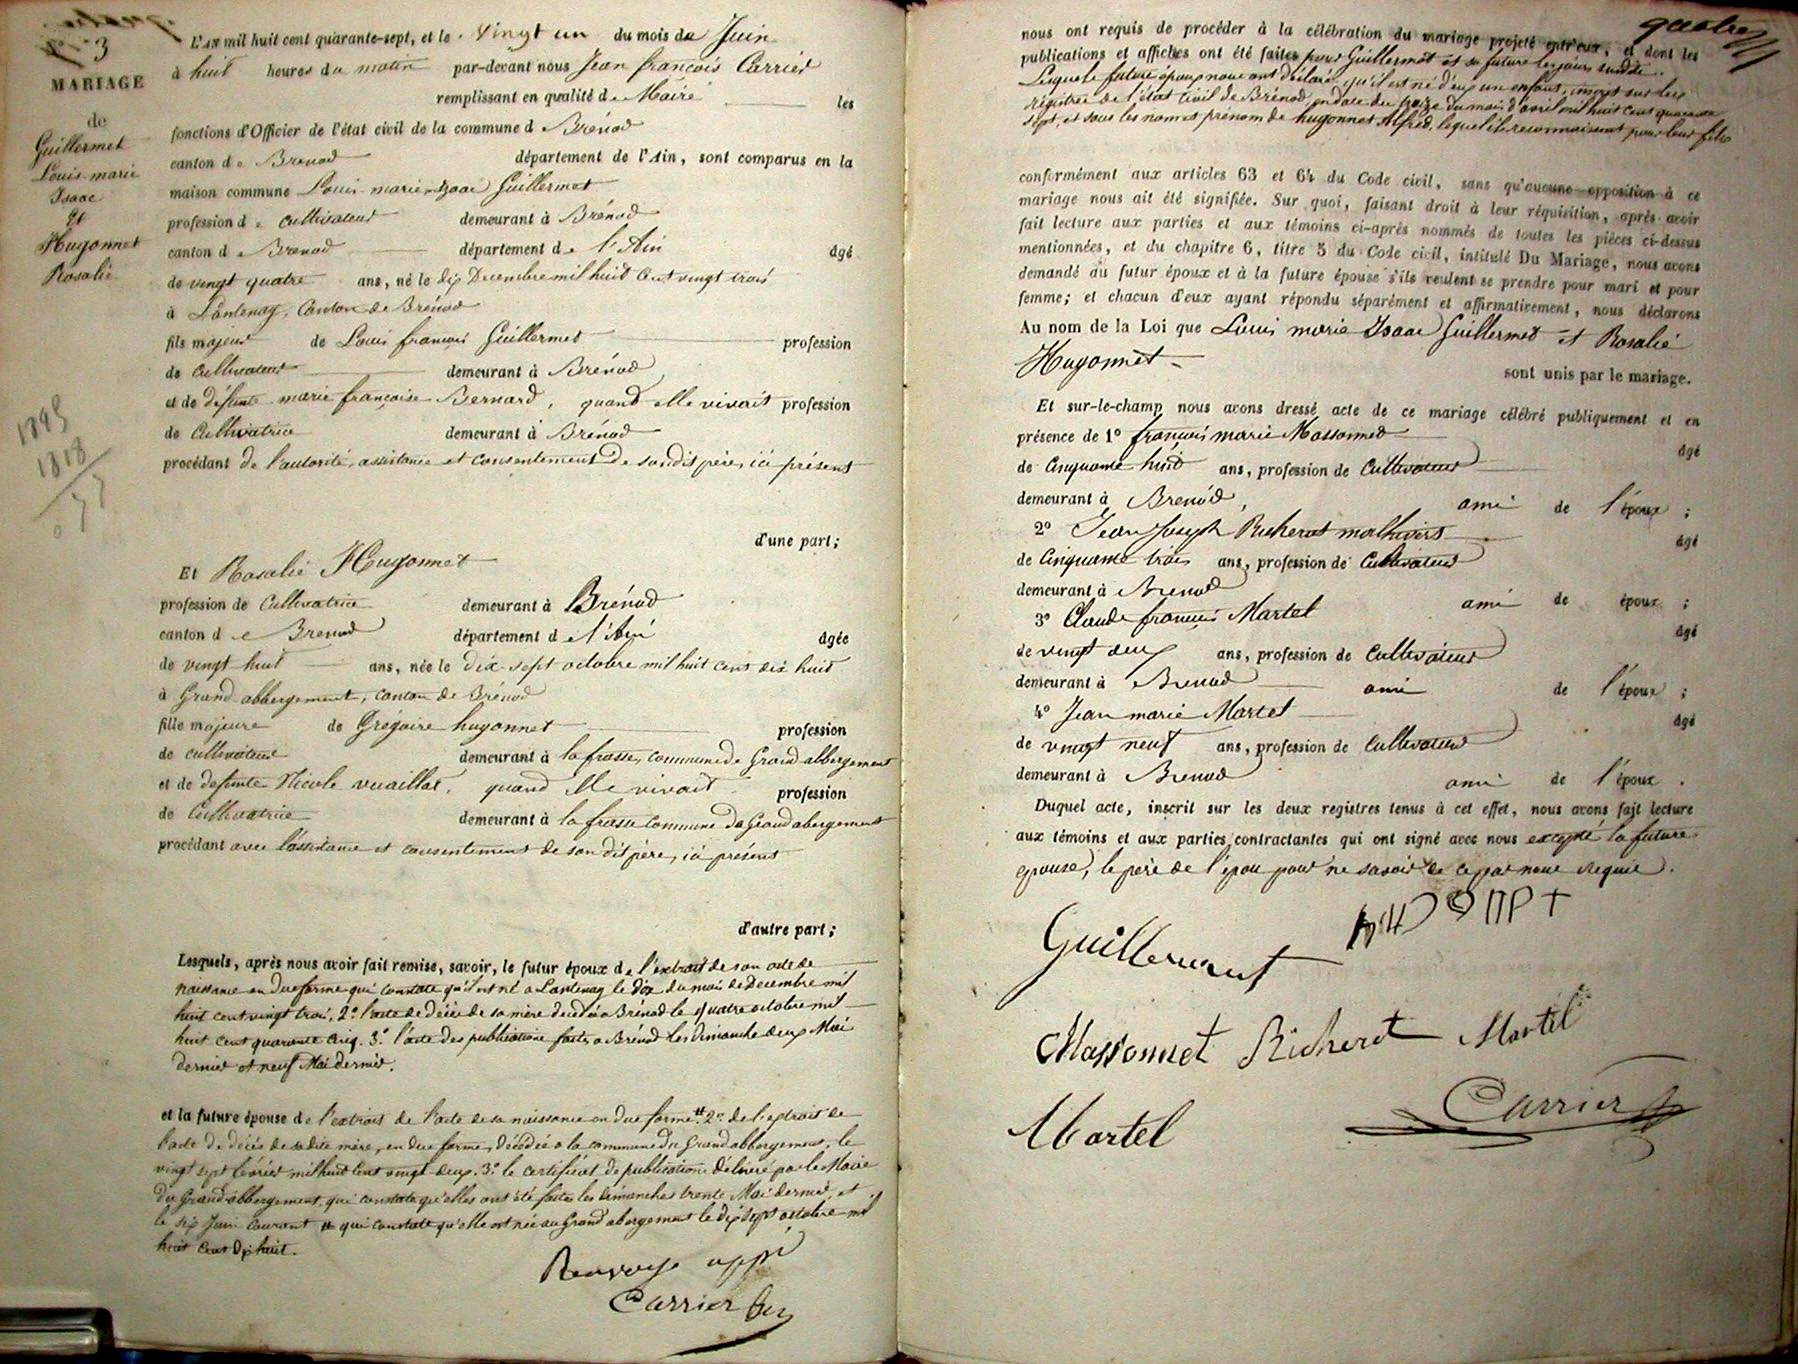 3
MARIAGE
de
Guillermet
Louis marie
Isaac
Et
Hugonnet
Rosalie
1845
1818
L'AN mil huit cent quarante-sept, et le vingt un du mois de Juin
à huit heures du matin par-devant nous Jean françois Carrier
remplissant en qualité de Maire les
fonctions d'Officier de l'état civil de la commune de Brénod
canton de Brenod département de l'Ain, sont comparus en la
maison commune Louis marie Isaac Guillermet
profession de cultivateur demeurant à Brénod
canton de Brenod département de l'Ain âgé
de vingt quatre ans, né le dix Decembre mil huit cent vingt trois
à Lantenay, Canton de Brénod
fils majeur de Louis françois Guillermet profession
de Cultivateur demeurant à Brénod
et de défunte marie françoise Bernard, quand elle vivait profession
de Cultivatrice demeurant à Brénod
procédant de l'autorité, assistance et consentement de son dit père, ici présent
d'une part;
Et Rosalie Hugonnet
profession de Cultivatrice demeurant à Brénod
canton de Brenod département de l'Ain âgée
de vingt huit ans, née le dix sept octobre mil huit cent dix huit
à Grand abbergement, canton de Brénod
fille majeure de Grégoire hugonnet profession
de cultivateur demeurant à la frasse, commune de Grand abbergement
et de defunte Nicole vuaillat, quand elle vivait profession
de Cultivatrice demeurant à la frasse commune du Grand abergement
procédant avec l'assistance et consentement de son dit père, ici présent
d'autre part;
Lesquels, après nous avoir fait remise, savoir, le futur époux de l'extrait de son acte de
naissance en due forme qui constate qu'il est né a Lantenay le dix du mois de Decembre mil
huit cent vingt trois, 2.° l'acte de décès de sa mère décédée a Brénod le quatre octobre mil
huit cent quarante cinq. 3.° l'acte des publications faites a Brénod les Dimanche deux Mai
dernier et neuf Mai dernier.
et la future épouse de l'extrait de l'acte de sa naissance en due forme # 2.° de l'extrait de
l'acte de décès de sa dite mère, en due forme, décédée a la commune du Grand abbergement, le
vingt sept février mil huit cent vingt deux. 3.° le certificat de publications délivré par le Maire
du Grand abbergement, qui constate qu'elles ont été faites les Dimanches trente Mai dernier, et
le six Juin courant # qui constate qu'elle est née au Grand abergement le dix sept octobre mil
huit cent dix huit.
Renvoye appr
Carrier
quatre
nous ont requis de procéder à la célébration du mariage projeté entr'eux, et dont les
publications et affiches ont été faites pour Guillermet et sa future les jours susdits.
Lesquels futurs époux nous ont déclaré qu'il est né d'eux un enfant, inscrit sur les
régistres de l'état civil de Brénod en date du treize du mois d'avril mil huit cent quarante
sept, et sous les nom et prénom de hugonnet Alfred, lequel ils reconnaissent pour leur fils
conformément aux articles 63 et 64 du Code civil, sans qu'aucune opposition à ce
mariage nous ait été signifiée. Sur quoi, faisant droit à leur réquisition, après avoir
fait lecture aux parties et aux témoins ci-après nommés de toutes les pièces ci-dessus
mentionnées, et du chapitre 6, titre 5 du Code civil, intitulé Du Mariage, nous avons
demandé au futur époux et à la future épouse s'ils veulent se prendre pour mari et pour
femme; et chacun d'eux ayant répondu séparément et affirmativement, nous déclarons
Au nom de la Loi que Louis marie Isaac Guillermet et Rosalie
Hugonnet
sont unis par le mariage.
Et sur-le-champ nous avons dressé acte de ce mariage célébré publiquement et en
présence de 1° françois marie Massonnet âgé
de Cinquante huit ans, profession de Cultivateur
demeurant à Brenod, ami de l'époux;
2° Jean Joseph Richerot malhivers âgé
de Cinquante trois ans, profession de Cultivateur
demeurant à Brenod ami de époux;
3° Claude françois Martel âgé
de vingt deux ans, profession de Cultivateur
demeurant à Brenod ami de l'époux;
4° Jean marie Martel âgé
de vingt neuf ans, profession de Cultivateur
demeurant à Brenod ami de l'époux.
Duquel acte, inscrit sur les deux registres tenus à cet effet, nous avons fait lecture
aux témoins et aux parties contractantes qui ont signé avec nous excepté la future
epouse, le père de l'époux pour ne savoir de ce par nous requis.
Guillermet
Massonnet Richerot Martel
Martel Carrier